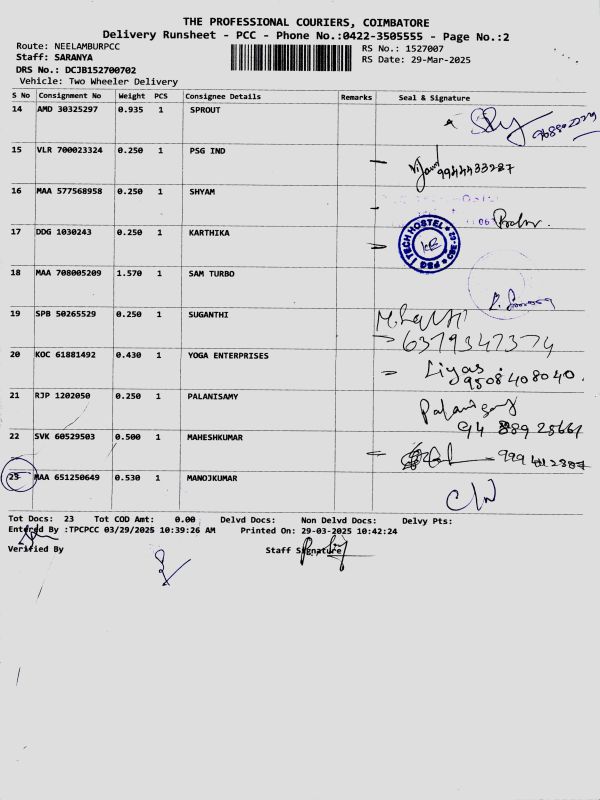 THE PROFESSIONAL COURIERS, COIMBATORE
Delivery Runsheet - PCC - Phone No.:0422-3505555 - Page No.:2
Route: NEELAMBURPCC
RS No.: 1527007
Staff: SARANYA
RS Date: 29-Mar-2025
DRS No.: DCJB152700702
Vehicle: Two Wheeler Delivery
S No Consignment No Weight PCS Consignee Details Remarks Seal & Signature
14 AMD 30325297 0.935 1 SPROUT
15 VLR 700023324 0.250 1 PSG IND
9944433287
16 MAA 577568958 0.250 1 SHYAM
17 DDG 1030243 0.250 1 KARTHIKA
PSG I TECH HOSTEL
18 MAA 708005209 1.570 1 SAM TURBO
19 SPB 50265529 0.250 1 SUGANTHI
6379347374
20 KOC 61881492 0.430 1 YOGA ENTERPRISES
Liyas
9508408040.
21 RJP 1202050 0.250 1 PALANISAMY
Palanisamy
22 SVK 60529503 0.500 1 MAHESHKUMAR
23 MAA 651250649 0.530 1 MANOJKUMAR
C/N
Tot Docs: 23 Tot COD Amt: 0.00 Delvd Docs: Non Delvd Docs: Delvy Pts:
Entered By :TPCPCC 03/29/2025 10:39:26 AM Printed On: 29-03-2025 10:42:24
Verified By Staff Signature